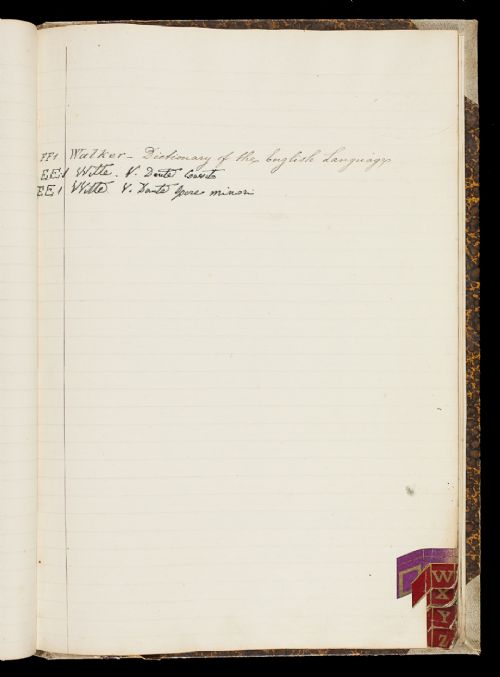 FF1 Walker - Dictionary of the English Language
EE1 Witte. V. Dante
EE1 Witte V. Dante Opere minori
W
X
Y
Z